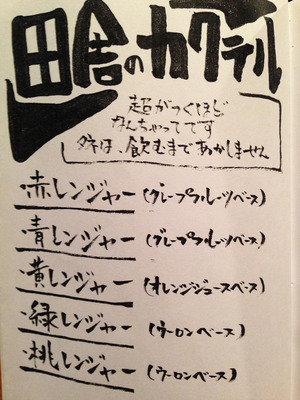 田舎のカクテル
超がつくほど
なんちゃってです
味は、飲むまであかしません
・赤レンジャー(グレープフルーツベース)
・青レンジャー(グレープフルーツベース)
・黄レンジャー(オレンジジュースベース)
・緑レンジャー(ウーロンベース)
・桃レンジャー(ウーロンベース)